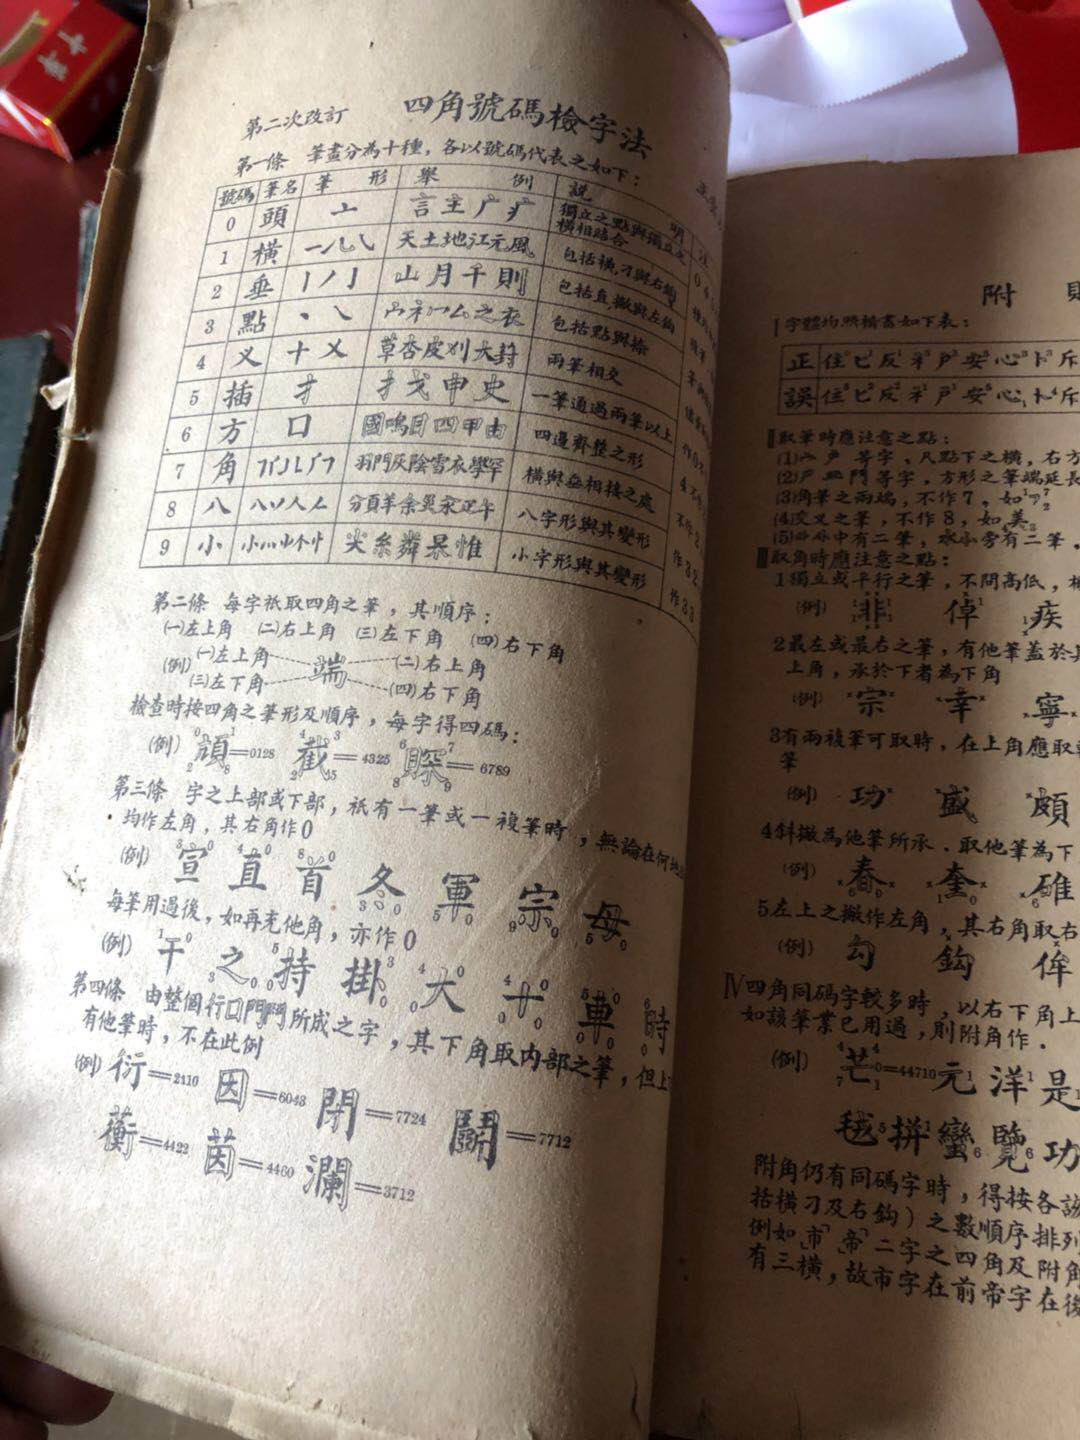 中華
第二次改訂 四角號碼檢字法
第一條 筆畫分為十種，各以號碼代表之如下：
號碼 筆名 筆形 舉例 說明 注
0 頭 亠 言主广疒 獨立之點與獨立之橫相結合
1 橫 一 天土地江元風 包括橫,刁與右鈎
2 垂 丨丿亅 山月千則 包括直,撇與左鈎
3 點 丶 之衣 包括點與捺
4 叉 十乂 草杏皮刈大 兩筆相交
5 插 扌 扌戈申史 一筆通過兩筆以上
6 方 口 國鳴目四甲由 四邊齊整之形
7 角 羽門灰陰雪衣學罕 橫與垂相接之處
8 八 八丷人 分頁羊余 午 八字形與其變形
9 小 小 尖糸 杲惟 小字形與其變形
第二條 每字祇取四角之筆，其順序：
(一)左上角 (二)右上角 (三)左下角 (四)右下角
(例) (一)左上角 端 (二)右上角
(三)左下角 (四)右下角
檢查時按四角之筆形及順序，每字得四碼：
(例) 顏=0128 截=4325 =6789
第三條 字之上部或下部，祇有一筆或一複筆時，無論在何地
均作左角，其右角作0
(例) 宣 直 首 冬 軍 宗 母
每筆用過後，如再充他角，亦作0
(例) 干 之 持 掛 大 十 車 時
第四條 由整個行囗門鬥所成之字，其下角取內部之筆，但上
有他筆時，不在此例
(例) 衍=2110 因=6043 閉=7724 鬭=7712
蘅=4422 茵=4460 瀾=3712
附 則
I 字體均照楷書如下表：
正 住匕反礻戶安心卜斥
誤 住匕反礻戸安心卜斥
II 取筆時應注意之點：
(1)宀戶等字，凡點下之橫，右方
(2)尸皿門等字，方形之筆端延長
(3)角筆之兩端，不作7，如
(4)交叉之筆，不作8，如美
中有二筆，水小旁有二筆，
III 取角時應注意之點：
1 獨立或平行之筆，不問高低，
(例) 非 倬 疾
2 最左或最右之筆，有他筆蓋於其
上角，承於下者為下角
(例) 宗 幸 寧
3 有兩複筆可取時，在上角應取
筆
(例) 功 盛 頗
4 斜撇為他筆所承．取他筆為下
(例) 春 奎 碓
5 左上之撇作左角，其右角取右
(例) 勾 鈎 侔
IV 四角同碼字較多時，以右下角上
如該筆業已用過，則附角作．
(例) 芒=44710 元 洋 是
毯 拼 蠻 覽 功
附角仍有同碼字時，得按各該
括橫刁及右鈎）之數順序排列
例如「市」「帝」二字之四角及附角
有三橫，故市字在前帝字在後